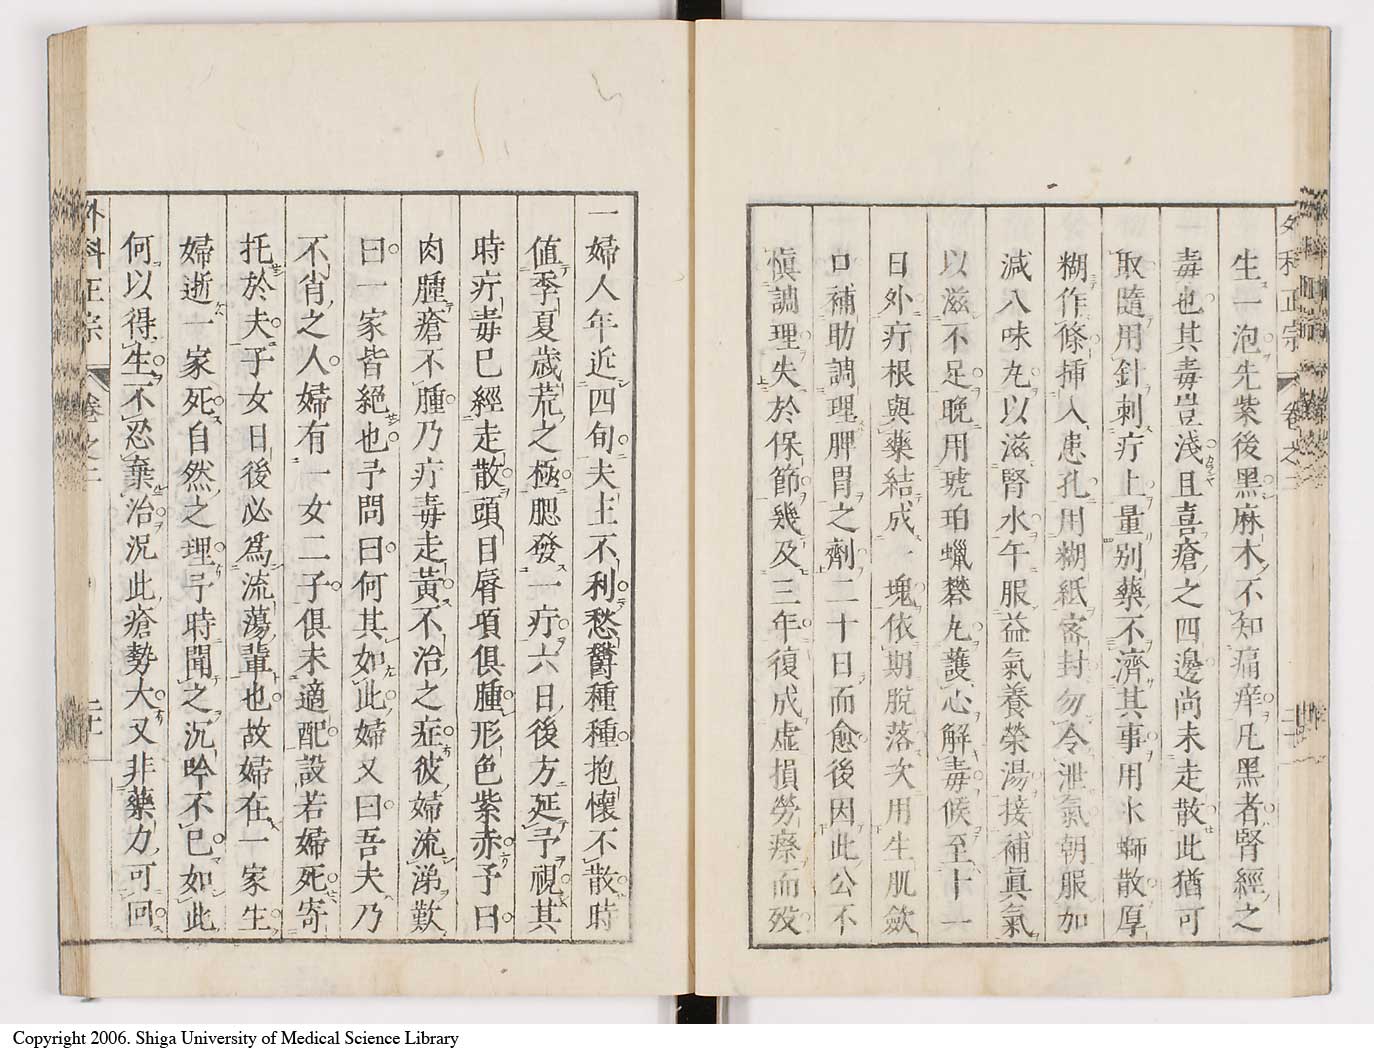 生一泡先紫後黑麻木不知痛痒凡黑者腎經之
毒也其毒豈淺且喜瘡之四邊尚未走散此猶可
取隨用針刺疔上量别藥不濟其事用氷螄散厚
糊作條揷入患孔用糊紙宻封勿令泄氣朝服加
減八味丸以滋腎水午服益氣養榮湯接補眞氣
以滋不足晚用琥珀蠟礬丸護心解毒候至十一
日外疔根與藥結成一塊依期脫落次用生肌歛
口補助調理脾胃之劑二十日而愈後因此公不
愼調理失於保節幾及三年復成虛損勞瘵而歿
一婦人年近四旬夫主不利愁鬱種種抱懷不散時
値季夏歲荒之極腮發一疔六日後方延予視其
時疔毒已經走散頭目唇項俱腫形色紫赤予曰
肉腫瘡不腫乃疔毒走黃不治之症彼婦流涕歎
曰一家皆絕也予問曰何其如此婦又曰吾夫乃
不肖之人婦有一女二子俱未適配設若婦死寄
托於夫子女日後必爲流蕩輩也故婦在一家生
婦逝一家死自然之理予時聞之沉吟不已如此
何以得生不忍棄治況此瘡勢大又非藥力可回
外科正宗
卷之二
二十一
外科正宗
卷之二
Copyright 2006. Shiga University of Medical Science Library